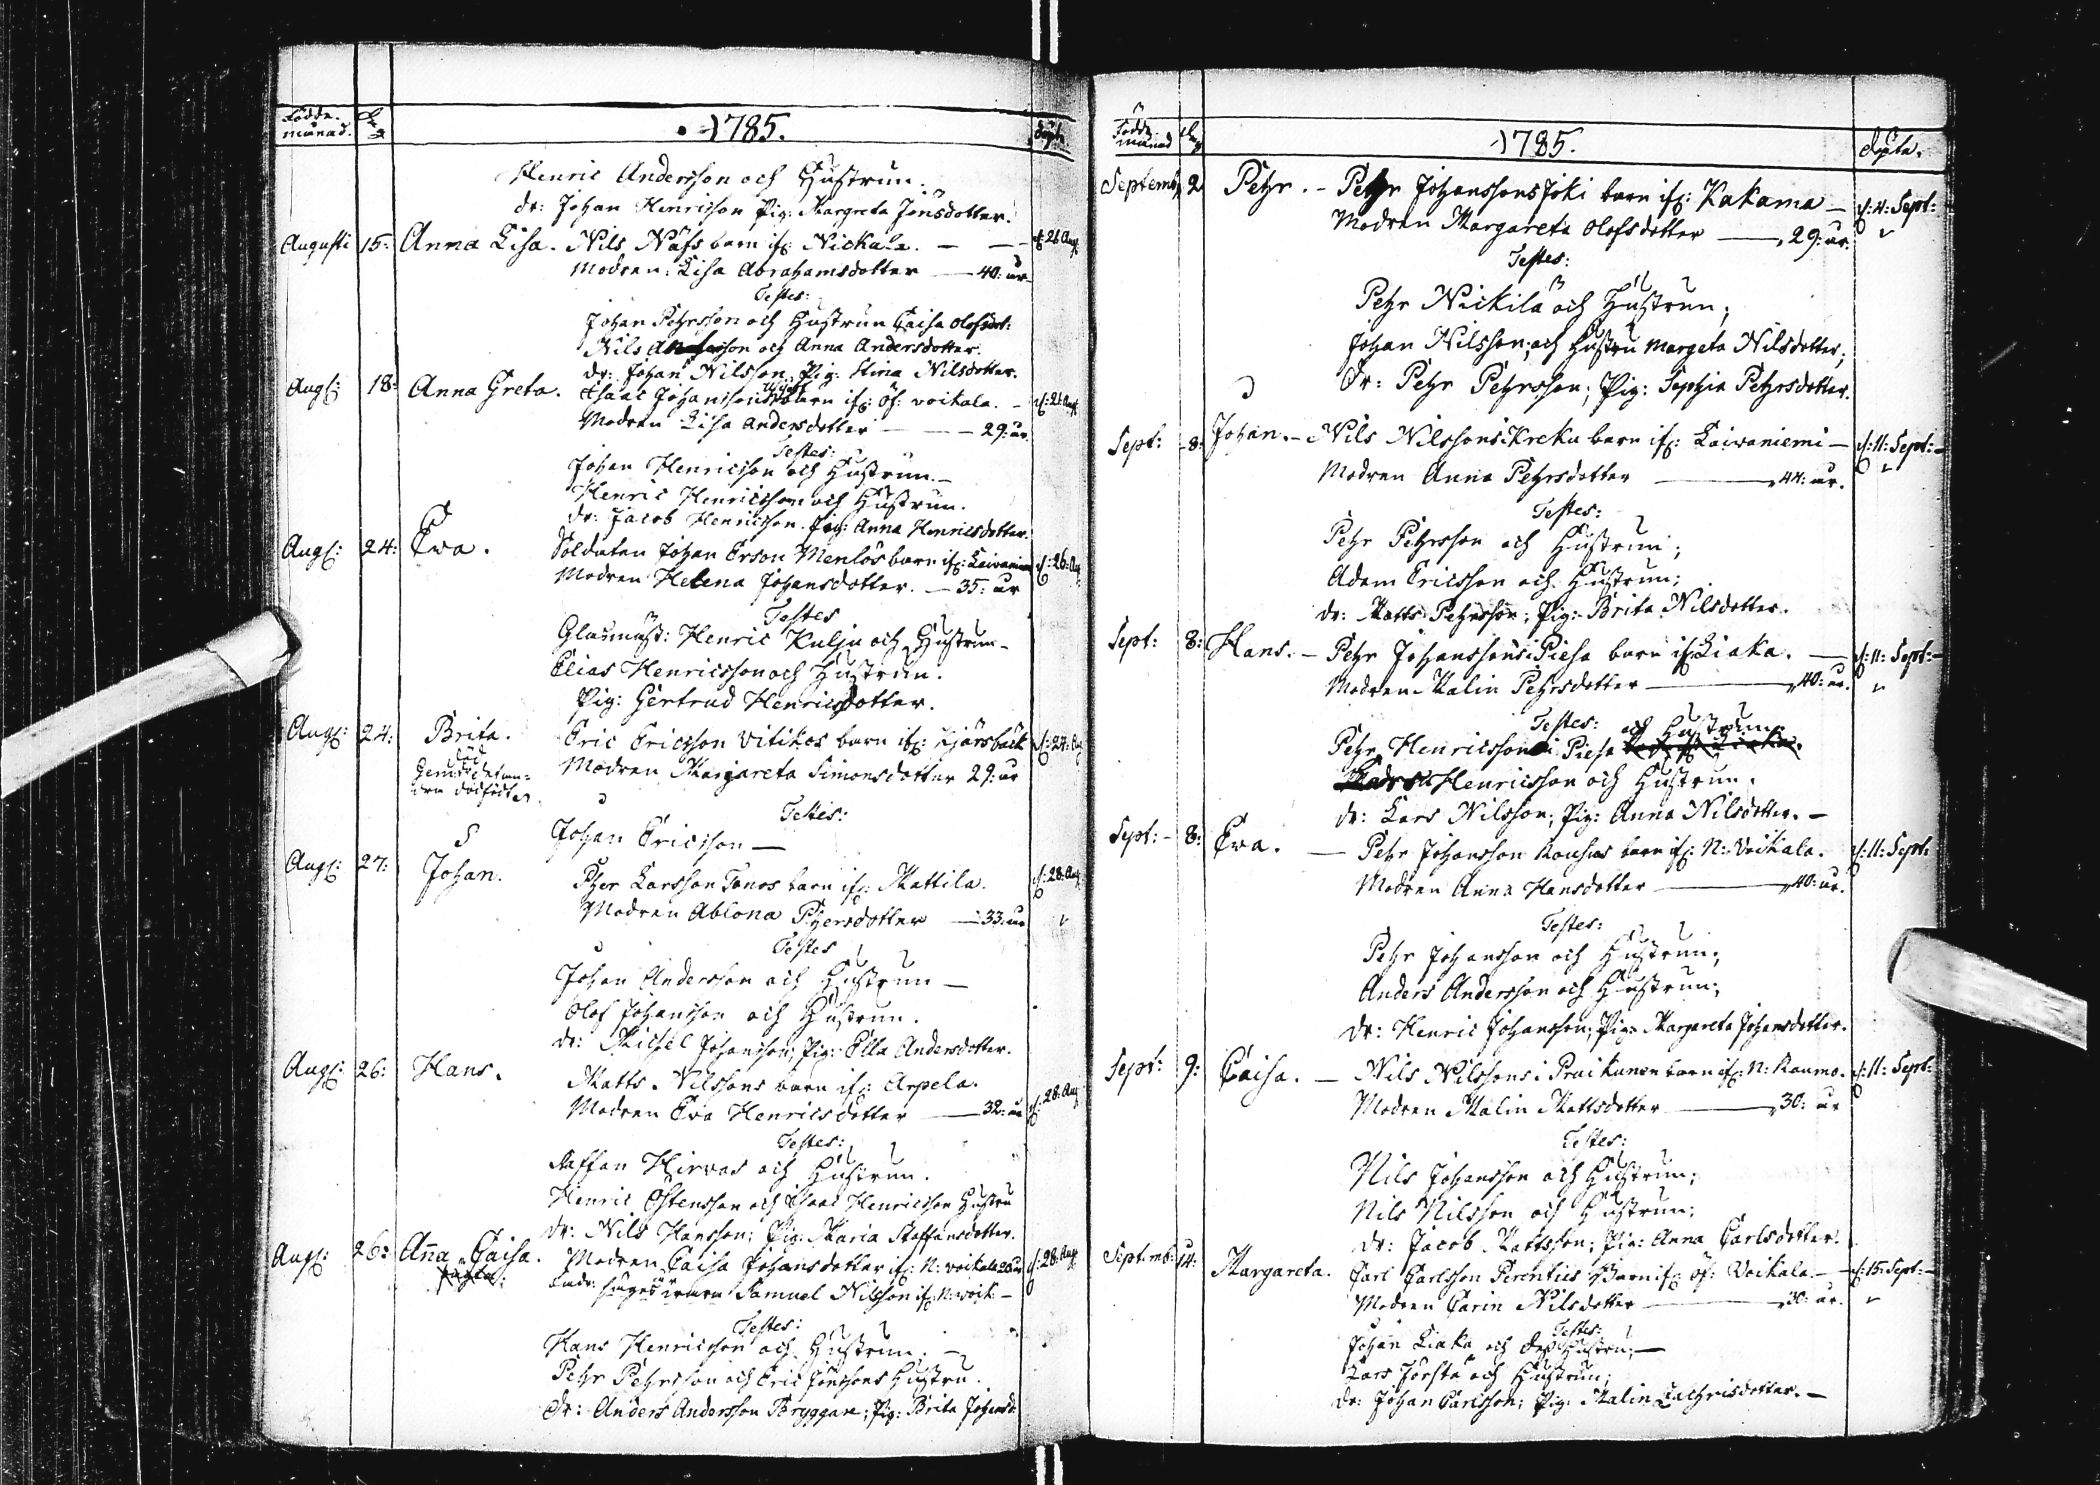 Födde månad. dag 1785. döpte
Henric Andersson och Hustrun.
dr: Johan Henricsson Pig: Margreta Jönsdotter.
Augusti 15: Anna Lisa. Nils Näfs barn if: Nickala. — — d: 21 Aug.
Modren: Lisa Abrahamsdotter — 40: år
Testes:
Johan Pehrsson och Hustrun Caisa Olofsdot:
Nils och Anna Andersdotter.
dr: Johan Nilsson, Pig: Stina Nilsdotter.
Aug: 18: Anna Greta. Isaac Johanssons barn if: öf: voikala. — d: 21 Aug:
Modren Lisa Andersdotter — — 29: år
Testes:
Johan Henricsson och Hustrun. —
Henric Henricsson och Hustrun.
dr: Jacob Henricsson. Pig: Anna Henricsdotter.
Aug: 24: Eva. Soldaten Johan Erson Menlös barn if: Laivaniemi d: 26: Aug
Modren Helena Johansdotter. — 35: år
Testes
Glasmäst: Henric Kulju och Hustrun —
Elias Henricsson och Hustrun.
Pig: Gertrud Henricsdotter.
Aug: 24: Brita. Eric Ericsson Vitikos barn if: d: 24: Aug
död
Modren Margareta Simonsdotter 29: år
Testis:
Johan Ericsson —
Aug: 27: Johan. Pher Larsson Tonos barn if: Mattila. d: 28: Aug
Modren Ablona Phersdotter — 33: år
Testes
Johan Andersson och Hustrun —
Olof Johansson och Hustrun.
dr: Michel Johansson; Pig: Ella Andersdotter.
Aug: 26: Hans. Matts Nilssons barn if: Arpela. d: 28: Aug
Modren Eva Henricsdotter — 32: år
Testes:
Staffan Hirvas och Hustrun.
Henric Östensson och Isaac Henricsson Hustru
dr: Nils Hansson; Pig: Maria Staffansdotter.
Aug: 26: Anna Caisa. Modren Caisa Johansdotter if: N: voikala 26 år d: 28: Aug
oägta: Samuel Nilsson if: N: voik: —
Testes:
Hans Henricsson och Hustrun. —
Pehr Pehrsson och Eric Jönssons Hustru.
Dr: Anders Andersson Bryggare; Pig: Brita Johansd:
Födde månad dag 1785. döpte.
Septemb: 2 Pehr. — Pehr Johanssons Joki barn if: Kakama — d: 4: Sept:
Modren Margareta Olofsdotter — 29: år
Testes:
Pehr Nickilä och Hustrun;
Johan Nilsson; och Hustru Margeta Nilsdotter;
Dr: Pehr Pehrsson; Pig: Sophia Pehrsdotter.
Sept: 8: Johan. — Nils Nilssons Kreku barn if: Laivaniemi — d: 11: Sept: —
Modren Anna Pehrsdotter — 44: år.
Testes:
Pehr Pehrsson och Hustrun;
Adam Ericsson och Hustrun;
dr: Matts Pehrsson; Pig: Brita Nilsdotter.
Sept: 8: Hans. — Pehr Johanssons Piesa barn if: Liaka. — d: 11: Sept: —
Modren Malin Pehrsdotter — 40: år.
Testes:
Pehr Henricsson Piesa och Hustrun
Henricsson och Hustrun.
dr: Lars Nilsson; Pig: Anna Nilsdotter. —
Sept: — 8: Eva. — Pehr Johansson Kouhus barn if: N: Voikala. d: 11: Sept:
Modren Anna Hansdotter — 40: år.
Testes:
Pehr Johansson och Hustrun;
Anders Andersson och Hustrun;
Dr: Henric Johansson; Pig: Margareta Johansdotter.
Sept: 9: Caisa. — Nils Nilssons Praikunen barn if: N: Raumo. d: 11: Sept:
Modren Malin Mattsdotter — 30: år
Testes:
Nils Johansson och Hustrun;
Nils Nilsson och Hustrun;
dr: Jacob Mattsson; Pig: Anna Carlsdotter.
Septemb: 14: Margareta. Carl Carlsson Perenties Barn if: öf: Voikala — d: 15: Sept: —
Modren Carin Nilsdotter — 30: år.
Testes:
Johan Liaka och dess Hustru; —
Lars Jörsta och Hustrun;
dr: Johan Carlsson; Pig: Malin Zachrisdotter. —